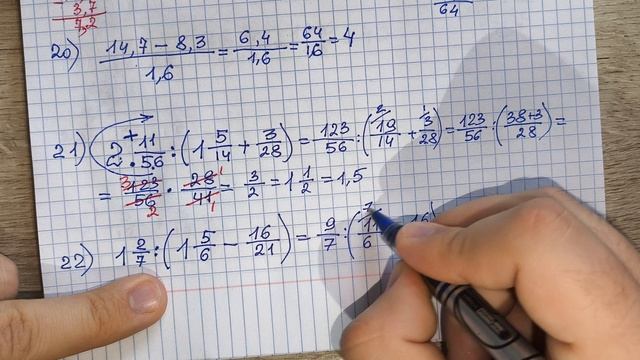 3,7
7,2
64
20) (14,7 − 8,3)/1,6 = 6,4/1,6 = 64/16 = 4
21) 2 11/56 : (1 5/14 + 3/28) = 123/56 : (19/14 + 3/28) = 123/56 : ((38+3)/28) =
= 123/56 · 28/41 = 3/2 = 1 1/2 = 1,5
22) 1 2/7 : (1 5/6 − 16/21) = 9/7 : (11/6 16